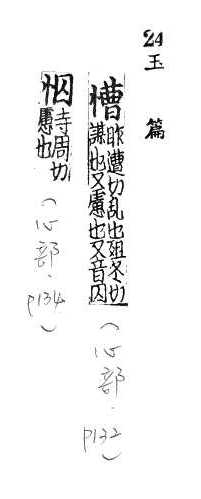 24
玉篇
慒昨遭切乱也又似冬切
謀也又慮也又音囚
(心部.p132)
怞寺周切
慮也
(心部.p134)